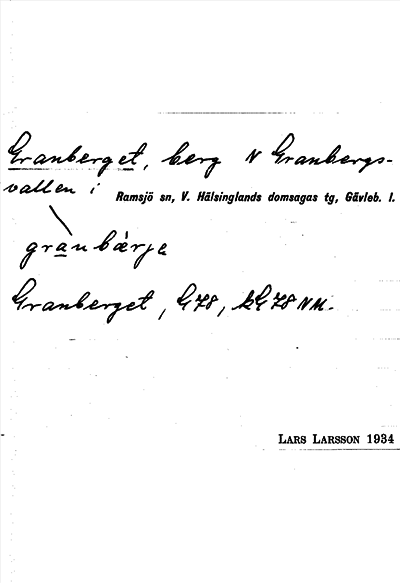 Granberget, berg N Granbergs-
vallen i Ramsjö sn, V. Hälsinglands domsagas tg, Gävleb. l.
granbärje
Granberget, G78, kG78 NM.
LARS LARSSON 1934